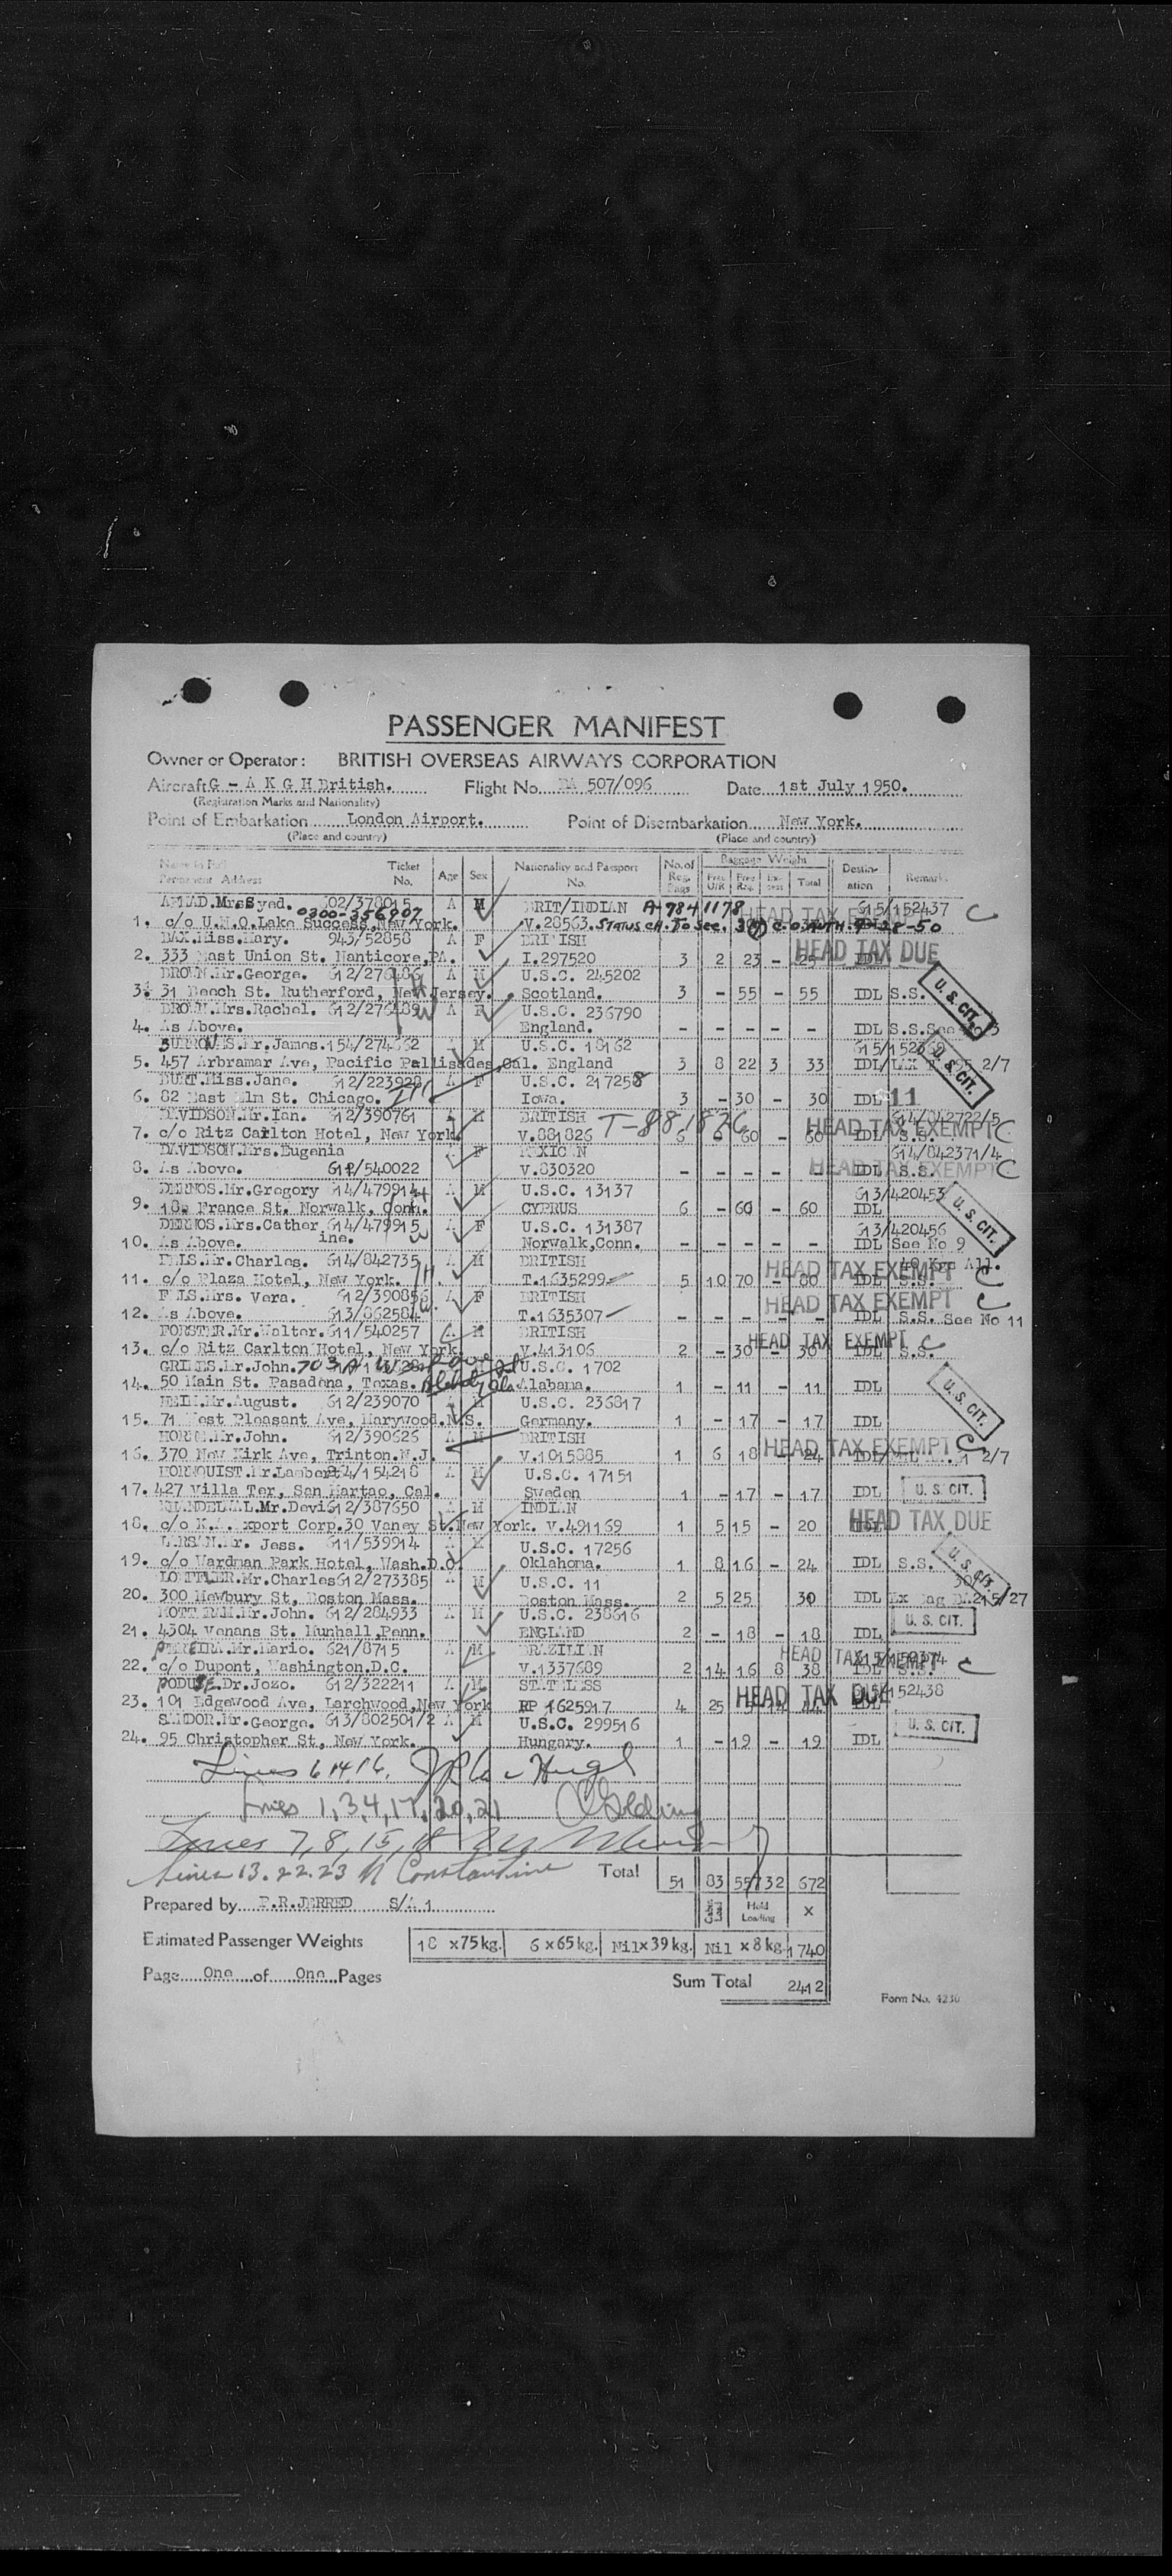 PASSENGER MANIFEST
Owner or Operator: BRITISH OVERSEAS AIRWAYS CORPORATION
Aircraft G - A K G H British. Flight No. BA 507/096 Date 1st July 1950.
(Registration Marks and Nationality)
Point of Embarkation London Airport. Point of Disembarkation New York.
(Place and country) (Place and country)
Name in Full Permanent Address Ticket No. Age Sex Nationality and Passport No. No. of Reg. Bags Baggage Weight Free U/R Free Reg. Excess Total Destination Remarks
AHMAD.Mrs Syed. 02/378015 A M BRIT/INDIAN A-7841178 HEAD TAX 615/152437 C
0200-356907
1. c/o U.N.O. Lake Success, New York. V.28563. STATUS CH. TO SEC. 3(7) C.O. AUTH. 9-28-50
DAX.Miss.Mary. 943/52858 A F BRITISH HEAD TAX DUE
2. 333 East Union St. Nanticore, PA. I.297520 3 2 23 - 25 IDL
BROWN.Mr.George. 612/276486 A M U.S.C. 245202 U.S. CIT.
3. 31 Beech St. Rutherford, New Jersey. Scotland. 3 - 55 - 55 IDL S.S.
BROWN.Mrs.Rachel. 612/276489 A F U.S.C. 236790
4. As Above. England. - - - - - IDL S.S. See No 3
BURROWES.Mr.James. 154/274362 A M U.S.C. 18162 615/1523 U.S. CIT.
5. 457 Arbramar Ave, Pacific Pallisades, Cal. England 3 8 22 3 33 IDL/LAX 2/7
BURT.Miss.Jane. 612/223928 A F U.S.C. 217258
6. 82 East Elm St. Chicago. Ill Iowa. 3 - 30 - 30 IDL 11
DAVIDSON.Mr.Ian. 612/390761 A M BRITISH T-881826 HEAD TAX EXEMPT 614/842722/5 C
7. c/o Ritz Carlton Hotel, New York. V.881826 6 - 60 - 60 IDL S.S.
DAVIDSON.Mrs.Eugenia F MEXICAN 614/842371/4
8. As Above. 612/540022 V.830320 - - - - - HEAD TAX EXEMPT IDL S.S. C
DERNOS.Mr.Gregory 614/479914 A M U.S.C. 13137 613/420453 U.S. CIT.
9. 18, France St. Norwalk, Conn. CYPRUS 6 - 60 - 60 IDL
DERNOS.Mrs.Catherine. 614/479915 A F U.S.C. 131387 613/420456
10. As Above. Norwalk, Conn. - - - - - IDL See No 9
FELS.Mr.Charles. 614/842735 A M BRITISH HEAD TAX EXEMPT 40 Kgs All. C
11. c/o Plaza Hotel, New York. T.1635299 5 10 70 - 80 IDL S.S.
FELS.Mrs. Vera. 612/390856 A F BRITISH HEAD TAX EXEMPT C
12. As Above. 613/862584 T.1635307 - - - - - IDL S.S. See No 11
FORSTER.Mr.Walter. 611/540257 A M BRITISH HEAD TAX EXEMPT C
13. c/o Ritz Carlton Hotel, New York. V.413106 2 - 30 - 30 IDL S.S.
GRIMES.Mr.John. U.S.C. 1702
14. 50 Main St. Pasadena, Texas. Alabama. 1 - 11 - 11 IDL U.S. CIT.
HEIL.Mr.August. 612/239070 A M U.S.C. 236817
15. 71 West Pleasant Ave, Marywood. N.S. Germany. 1 - 17 - 17 IDL
HORN.Mr.John. 612/390626 A M BRITISH HEAD TAX EXEMPT C
16. 370 New Kirk Ave, Trinton. N.J. V.1015885 1 6 18 - 24 IDL 2/7
HORNQUIST.Mr.Lambert 614/154218 A M U.S.C. 17151
17. 427 Villa Ter, San Martao, Cal. Sweden 1 - 17 - 17 IDL U.S. CIT.
KHANDELWAL.Mr.Devi 612/387650 A M INDIAN
18. c/o K.A. Export Corp. 30 Vaney St. New York. V.491169 1 5 15 - 20 IDL HEAD TAX DUE
LARSEN.Mr. Jess. 611/539914 A M U.S.C. 17256
19. c/o Wardman Park Hotel, Wash.D.C. Oklahoma. 1 8 16 - 24 IDL S.S. U.S. CIT.
LOEFFLER.Mr.Charles 612/273385 A M U.S.C. 11
20. 300 Newbury St, Boston Mass. Boston Mass. 2 5 25 30 IDL Ex Bag
MOTTERAM.Mr.John. 612/284933 A M U.S.C. 238616
21. 4304 Venans St. Munhall, Penn. ENGLAND 2 - 18 - 18 IDL U.S. CIT.
PEREIRA.Mr.Mario. 621/8715 A M BRAZILIAN HEAD TAX EXEMPT
22. c/o Dupont, Washington.D.C. V.1337689 2 14 16 8 38 IDL S.S. C
PODUSE.Dr.Jozo. 612/322211 A M STATELESS HEAD TAX DUE 152438
23. 101 Edgewood Ave, Larchwood, New York RP 1625917 4 25 44 IDL
SANDOR.Mr.George. 613/802501/2 A M U.S.C. 299516
24. 95 Christopher St, New York. Hungary. 1 - 19 - 19 IDL U.S. CIT.
Lines 6, 14, 16.
Lines 1,3,4,17,20,21 Golding
Lines 7,8,15,18
Lines 13.22.23 N Constantine Total 51 83 557 32 672
Prepared by P.R.JERRED S/A 1 Cabin Load Hold Loading X
Estimated Passenger Weights 18 x75kg. 6 x65kg. Nil x39kg. Nil x8kg. 1740
Page One of One Pages Sum Total 2412
Form No. 4230